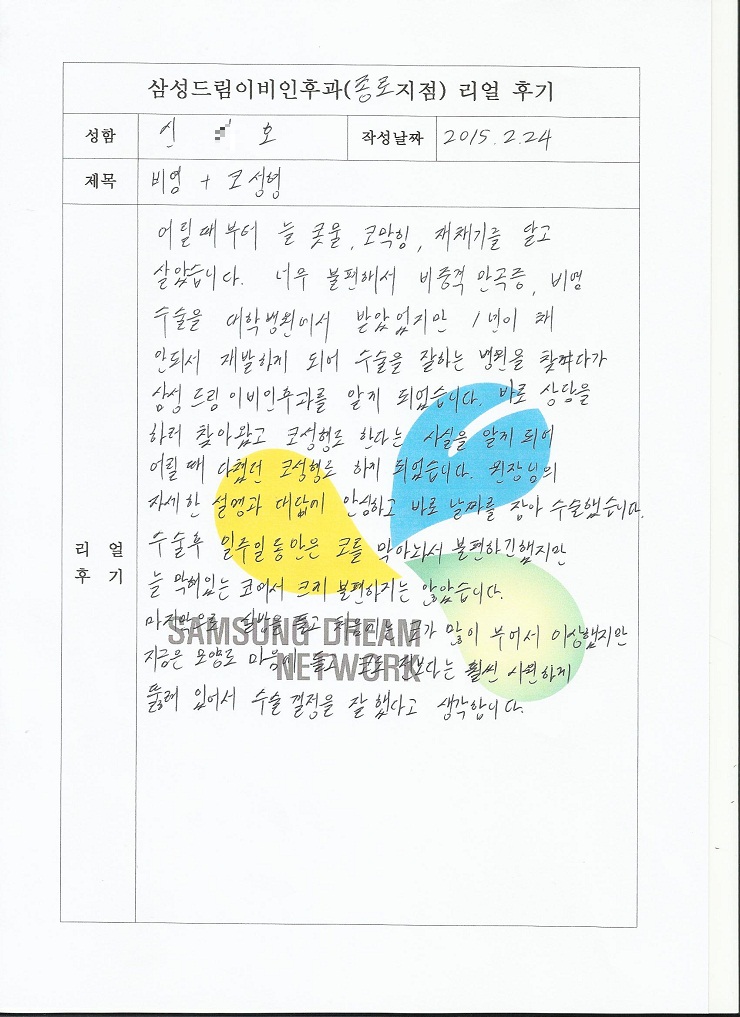 삼성드림이비인후과(종로지점) 리얼 후기
성함 신 호 작성날짜 2015.2.24
제목 비염 + 코성형
어릴때부터 늘 콧물, 코막힘, 재채기를 달고
살았습니다. 너무 불편해서 비중격 만곡증, 비염
수술을 대학병원에서 받았었지만 1년이 채
안되서 재발하게 되어 수술을 잘하는 병원을 찾다가
삼성드림이비인후과를 알게 되었습니다. 바로 상담을
하러 찾아왔고 코성형도 한다는 사실을 알게 되어
어릴때 다쳤던 코성형도 하게 되었습니다. 원장님의
자세한 설명과 대답에 안심하고 바로 날짜를 잡아 수술했습니다.
리얼 후기
수술후 일주일동안은 코를 막아놔서 불편하긴했지만
늘 막혀있는 코여서 크게 불편하지는 않았습니다.
마지막으로 실밥을 풀고 처음에는 코가 많이 부어서 이상했지만
지금은 모양도 마음에 들고 코도 전보다는 훨씬 시원하게
뚫려 있어서 수술 결정을 잘 했다고 생각합니다.
SAMSUNG DREAM
NETWORK